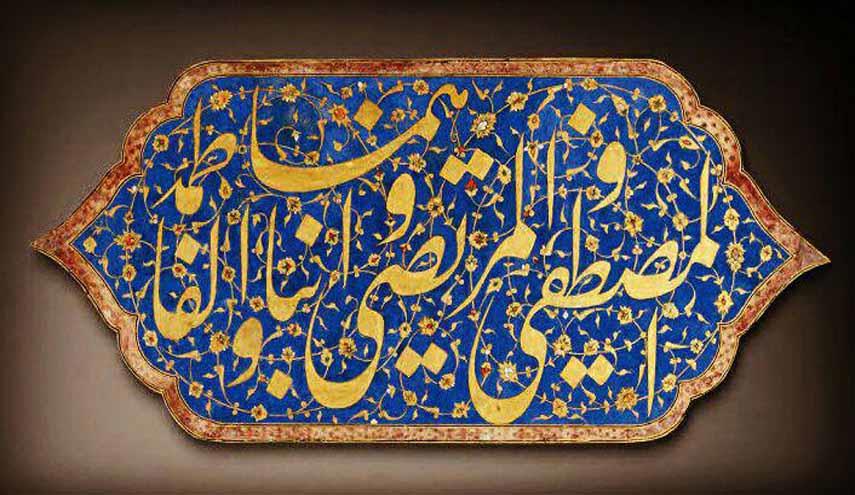 المصطفی و المرتضی و ابناهما و الفاطمه